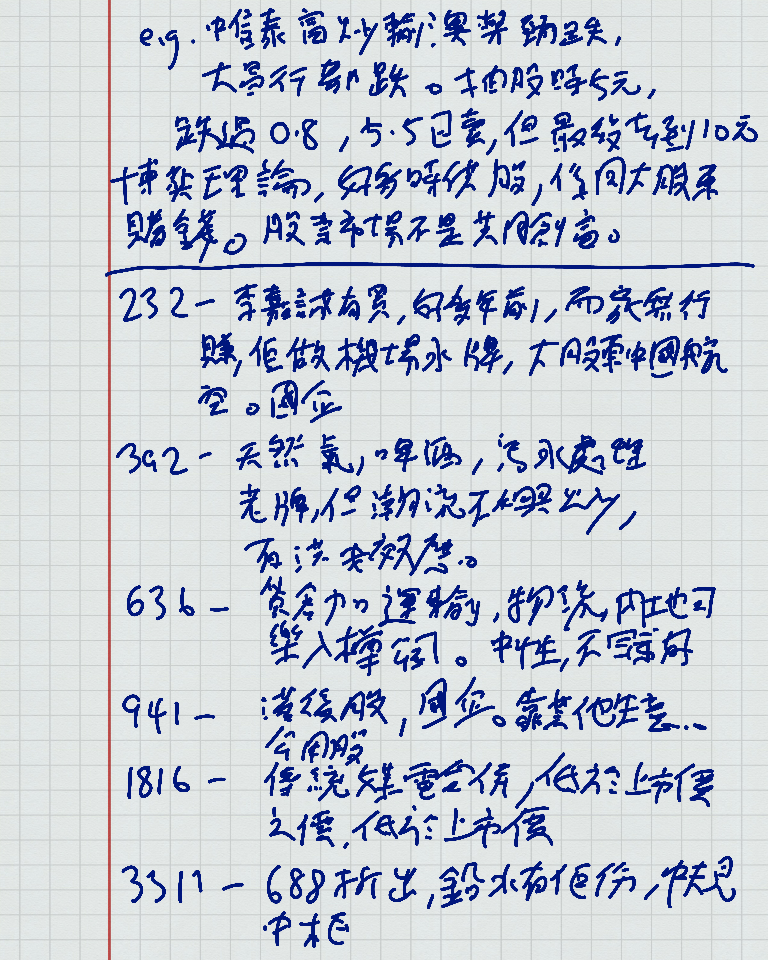 e.g. 中信泰富炒輸澳幣勁跌,
大等行都跌。抽股時5元,
跌過0.8,5.5已賣,但最終去到10元
博奕理論,好多時供股,係同大股東
賭錢。股票市場不是共同創富。
232 - 李嘉誠有買,好多年前,而家無行
賺,佢做機場水牌,大股東中國航
空。國企
392 - 天然氣,啤酒,污水處理
老牌,但潮流不興炒,
有洗夾效應。
636 - 貨倉加運輸,物流,內地可
樂入樽公司。中性,不算好
941 - 滯後股,國企。靠其他生意...
公用股
1816 - 傳統核電合併,低於上市價
之價,低於上市價
3311 - 688拆出,鋁水有佢份,中規
中柜